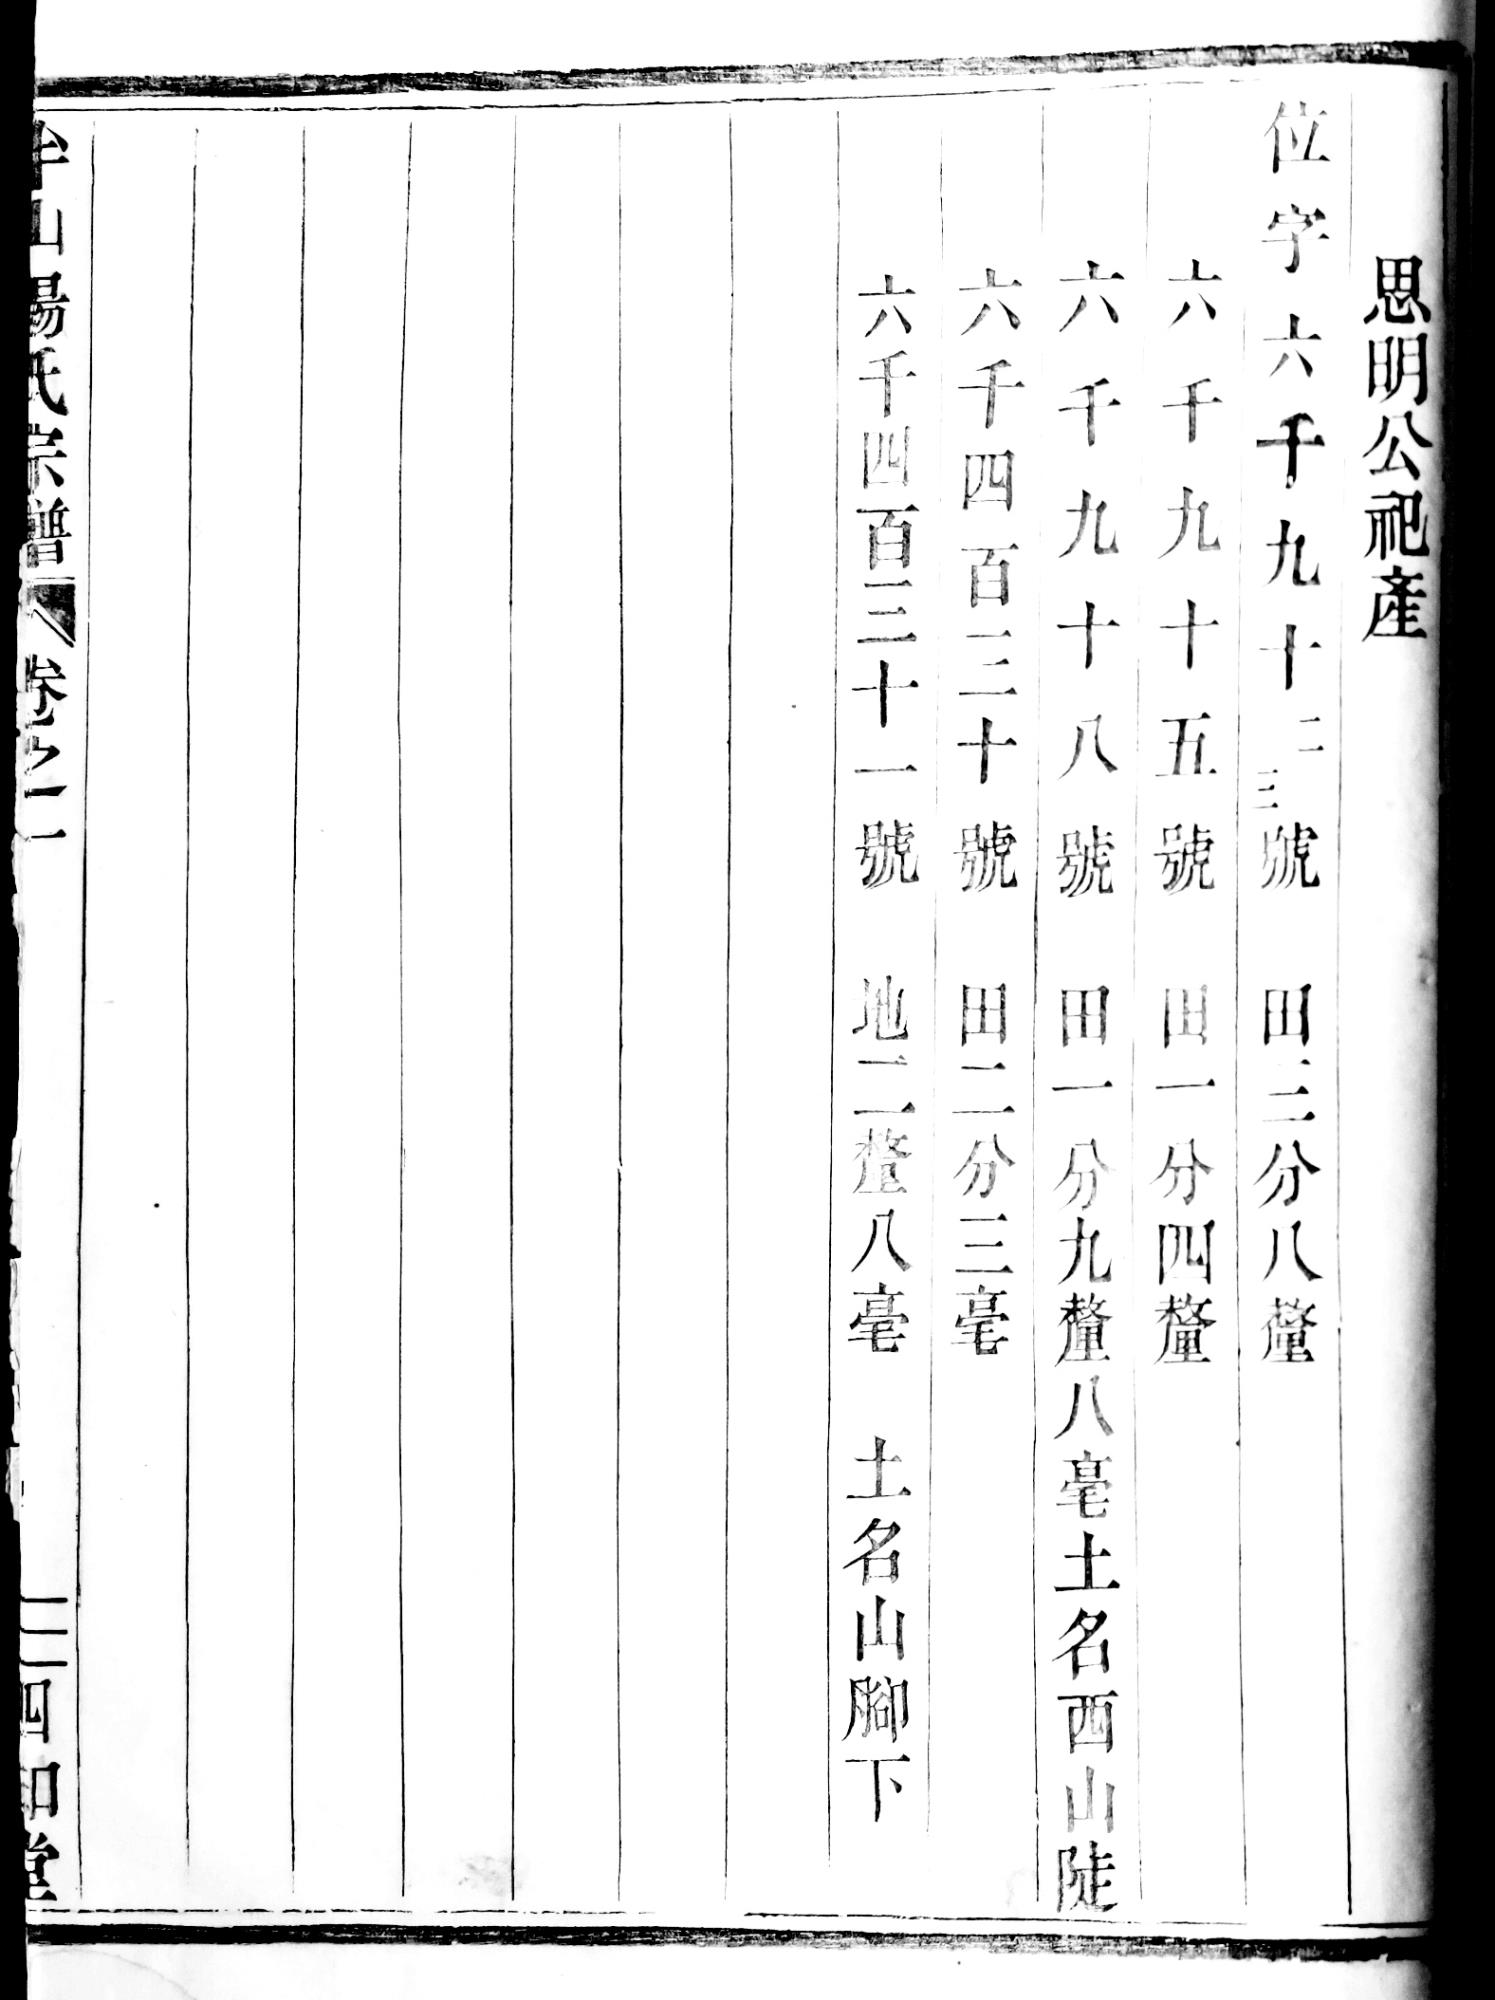 思明公祀產
位字六千九十二三號 田三分八釐
六千九十五號 田一分四釐
六千九十八號 田一分九釐八毫土名西山陡
六千四百三十號 田二分三毫
六千四百三十一號 地二釐八毫 土名山腳下
山楊氏宗譜 卷之二 四知堂